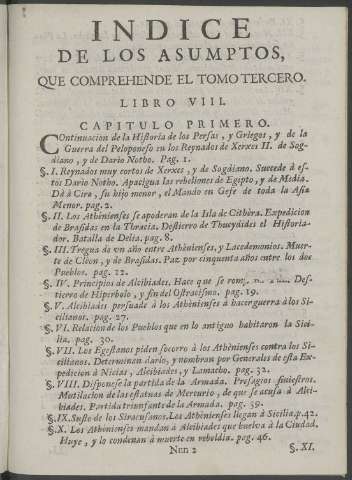 INDICE
DE LOS ASUMPTOS,
QUE COMPREHENDE EL TOMO TERCERO.
LIBRO VIII.
CAPITULO PRIMERO.
COntinuacion de la Historia de los Persas, y Griegos, y de la
Guerra del Peloponeso en los Reynados de Xerxes II. de Sog-
diano, y de Dario Notho. Pag. 1.
§. I. Reynados muy cortos de Xerxes, y de Sogdiano. Succede à es-
tos Dario Notho. Apacigua las rebeliones de Egypto, y de Media.
Dà à Ciro, su hijo menor, el Mando en Gefe de toda la Asia
Menor. pag. 2.
§. II. Los Athinienses se apoderan de la Isla de Cithèra. Expedicion
de Brasidas en la Thracia. Destierro de Thucydides el Historia-
dor. Batalla de Delia. pag. 8.
§. III. Tregua de un año entre Athènienses, y Lacedemonios. Muer-
te de Clèon, y de Brasidas. Paz por cinquenta años entre los dos
Pueblos. pag. 12.
§. IV. Principios de Alcibiades. Hace que se Des-
tierro de Hiperbolo, y fin del Ostracismo. pag. 19.
§. V. Alcibiades persuade à los Athènienses à hacer guerra à los Si-
cilianos. pag. 27.
§. VI. Relacion de los Pueblos que en lo antiguo habitaron la Sici-
lia. pag. 30.
§. VII. Los Egestanos piden socorro à los Athènienses contra los Si-
cilianos. Determinan darlo, y nombran por Generales de esta Ex-
pedicion à Nicias, Alcibiades, y Lamacho. pag. 32.
§. VIII. Disponese la partida de la Armada. Presagios siniestros.
Mutilacion de las estatuas de Mercurio, de que se acusa à Alci-
biades. Partida triunfante de la Armada. pag. 39.
§. IX. Susto de los Siracusanos. Los Athènienses llegan à Sicilia. p. 42.
§. X. Los Athènienses mandan à Alcibiades que buelva à la Ciudad.
Huye, y lo condenan à muerte en rebeldia. pag. 46.
Nnn 2 §. XI.